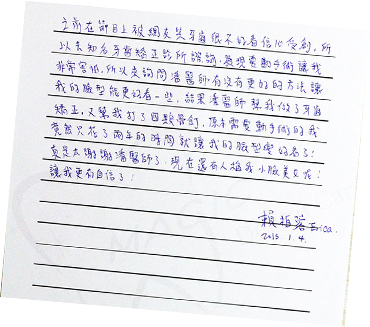 之前在節目上被網友笑牙齒很不好看信心受創，所
以去知名牙齒矯正診所諮詢，發現要動手術讓我
非常害怕，所以來詢問潘醫師有沒有更好的方法讓
我的臉型能更好看一些，結果潘醫師幫我做了牙齒
矯正，又幫我打了四顆骨釘，原本需要動手術的我
竟然只花了兩年的時間就讓我的臉型變好看了！
真是太謝謝潘醫師了，現在還有人稱我小臉美女呢！
讓我更有自信了！
賴 Erica.
2015. 1. 4.